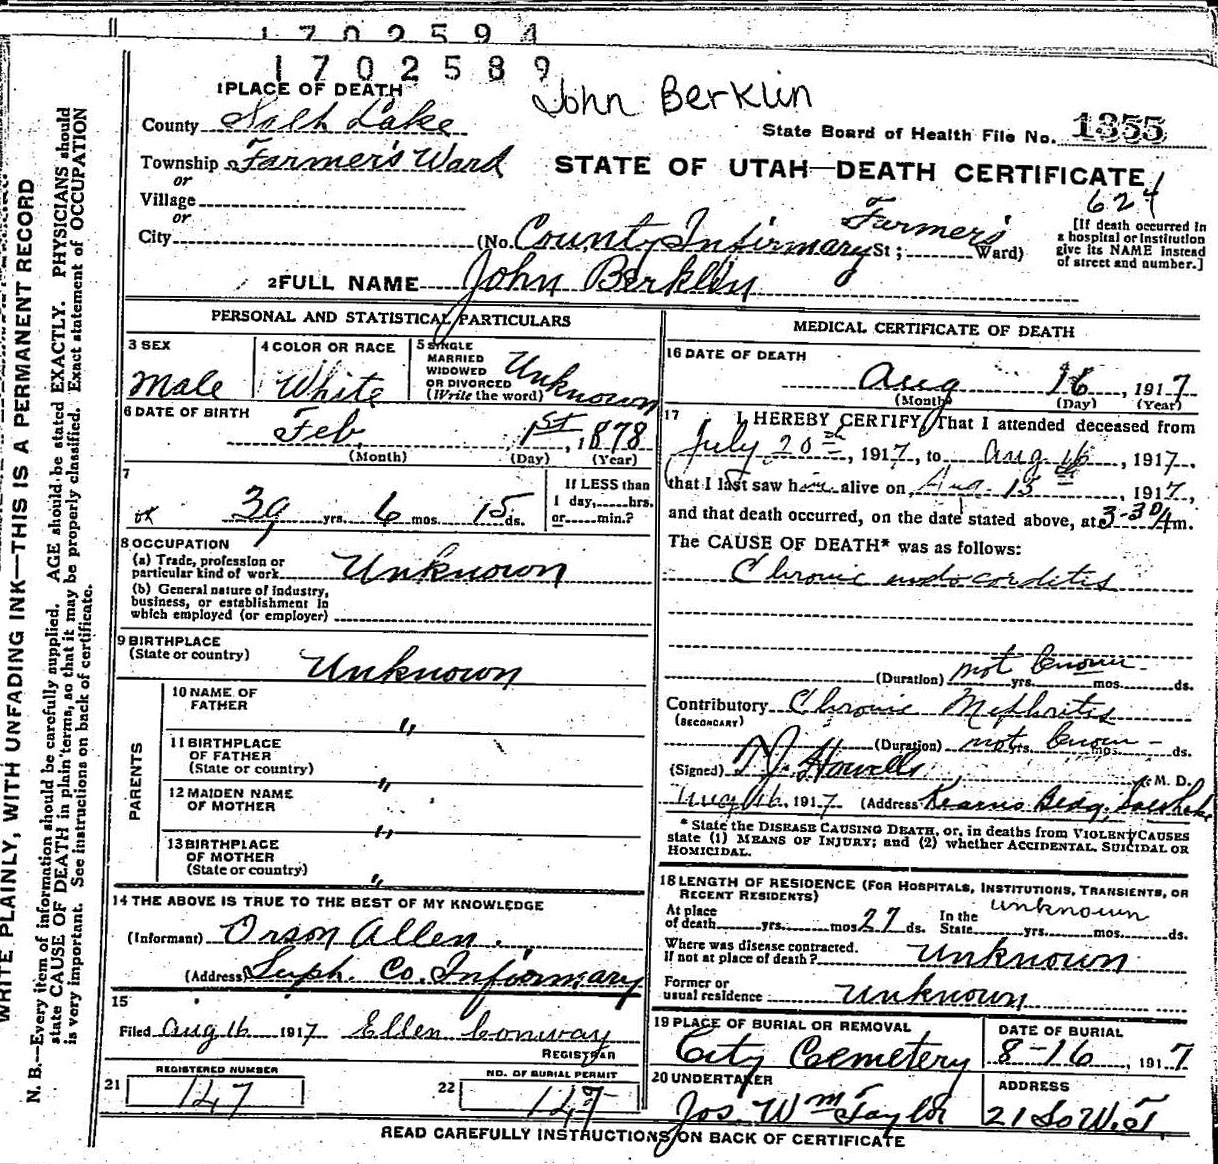 1702594
1702589
John Berklin
1 PLACE OF DEATH
County Salt Lake
State Board of Health File No. 1355
Township Farmer's Ward
STATE OF UTAH—DEATH CERTIFICATE
or
Village
624
or
City
(No. County Infirmary St; Farmer's Ward)
[If death occurred in a hospital or institution give its NAME instead of street and number.]
2 FULL NAME John Berklin
PERSONAL AND STATISTICAL PARTICULARS
3 SEX
Male
4 COLOR OR RACE
White
5 SINGLE MARRIED WIDOWED OR DIVORCED (Write the word)
Unknown
6 DATE OF BIRTH
Feb. 1st, 1878
(Month) (Day) (Year)
7
39 yrs. 6 mos. 15 ds.
If LESS than 1 day, hrs. or min.?
8 OCCUPATION
(a) Trade, profession or particular kind of work Unknown
(b) General nature of industry, business, or establishment in which employed (or employer)
9 BIRTHPLACE
(State or country) Unknown
PARENTS
10 NAME OF FATHER "
11 BIRTHPLACE OF FATHER (State or country) "
12 MAIDEN NAME OF MOTHER "
13 BIRTHPLACE OF MOTHER (State or country) "
14 THE ABOVE IS TRUE TO THE BEST OF MY KNOWLEDGE
(Informant) Orson Allen.
(Address) Supt. Co. Infirmary
15
Filed Aug 16 1917 Ellen Conway
REGISTRAR
21 REGISTERED NUMBER
147
22 NO. OF BURIAL PERMIT
147
MEDICAL CERTIFICATE OF DEATH
16 DATE OF DEATH
Aug 16, 1917
(Month) (Day) (Year)
17 I HEREBY CERTIFY, That I attended deceased from
July 20th, 1917, to Aug 16, 1917,
that I last saw him alive on Aug. 15th, 1917,
and that death occurred, on the date stated above, at 3-30 A m.
The CAUSE OF DEATH* was as follows:
Chronic endocorditis
(Duration) not known yrs. mos. ds.
Contributory Chronic Nephritis
(SECONDARY)
(Duration) not known yrs. mos. ds.
(Signed) Howells, M. D.
Aug 16, 1917 (Address Kearns Bldg, Salt Lake
* State the DISEASE CAUSING DEATH, or, in deaths from VIOLENT CAUSES
state (1) MEANS OF INJURY; and (2) whether ACCIDENTAL, SUICIDAL OR
HOMICIDAL.
18 LENGTH OF RESIDENCE (FOR HOSPITALS, INSTITUTIONS, TRANSIENTS, OR
RECENT RESIDENTS)
At place of death yrs. mos 27 ds. In the State unknown yrs. mos. ds.
Where was disease contracted. If not at place of death? Unknown
Former or usual residence Unknown
19 PLACE OF BURIAL OR REMOVAL
City Cemetery
DATE OF BURIAL
8-16, 1917
20 UNDERTAKER
Jos. Wm Taylor
ADDRESS
21 So W.T.
READ CAREFULLY INSTRUCTIONS ON BACK OF CERTIFICATE
WRITE PLAINLY, WITH UNFADING INK—THIS IS A PERMANENT RECORD
N. B.—Every item of information should be carefully supplied. AGE should be stated EXACTLY. PHYSICIANS should
state CAUSE OF DEATH in plain terms, so that it may be properly classified. Exact statement of OCCUPATION
is very important. See instructions on back of certificate.